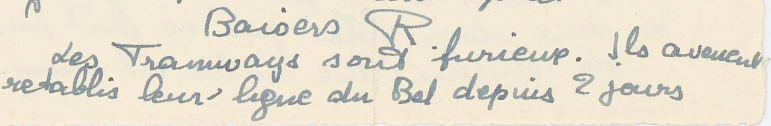 Baisers R
Les Tramways sont furieux. Ils avaient
retablis leur ligne du Bel depuis 2 jours